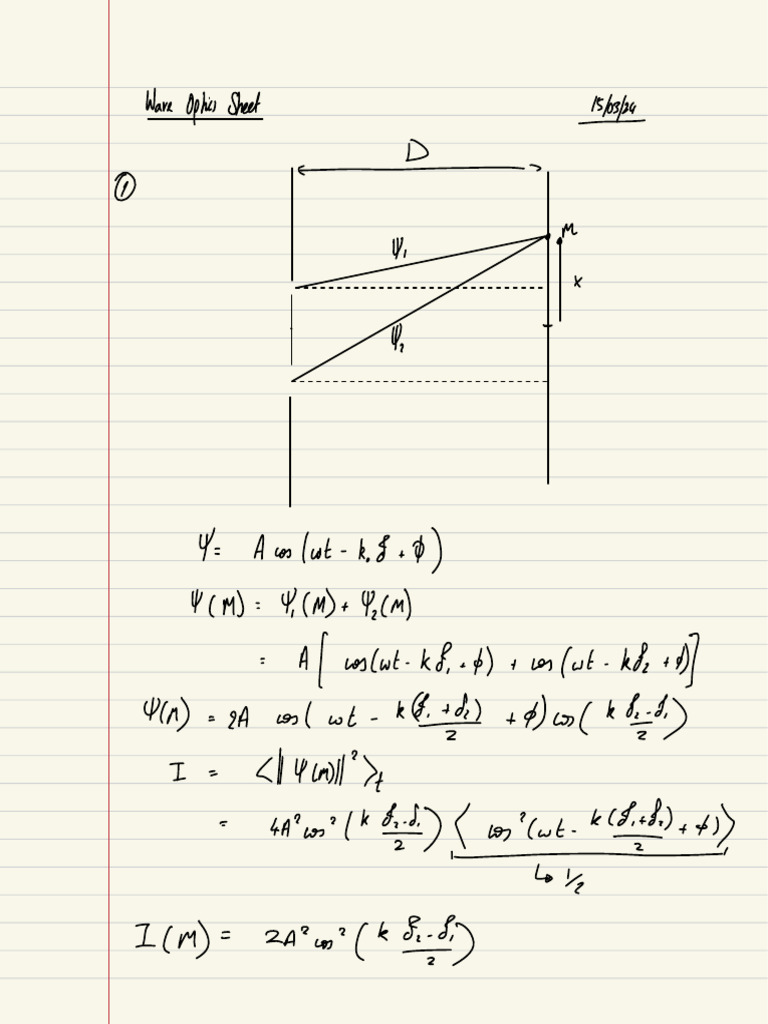 Wave Optics Sheet
15/03/24
①
D
M
Ψ₁
x
Ψ₂
Ψ = A cos(ωt - k.δ + ϕ)
Ψ(M) = Ψ₁(M) + Ψ₂(M)
= A[cos(ωt - kδ₁ + ϕ) + cos(ωt - kδ₂ + ϕ)]
Ψ(M) = 2A cos(ωt - k(δ₁ + δ₂)/2 + ϕ) cos(k (δ₂ - δ₁)/2)
I = <||Ψ(M)||²>ₜ
= 4A² cos²(k (δ₂ - δ₁)/2) <cos²(ωt - k(δ₁ + δ₂)/2 + ϕ)>
↳ 1/2
I(M) = 2A² cos²(k (δ₂ - δ₁)/2)